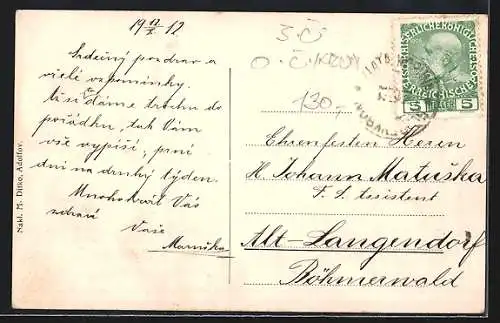 19 12/X 12
Srdečný pozdrav a
vielé vzpomínky.
dáme trochu do
pořádku, tak Vám
vše vypíši, první
dni na druhý týden.
Mnohokrát Vás
zdraví
Vaše
Mařenka
Nakl. M. Ditko, Adolfov.
3 Č
130,-
KAISERLICHE KÖNIGLICHE
ÖSTERREICHISCHE
5 HELLER 5
Ehrenfesten Herrn
H Johann Matuška
F. S. Assistent
Alt-Langendorf
Böhmerwald